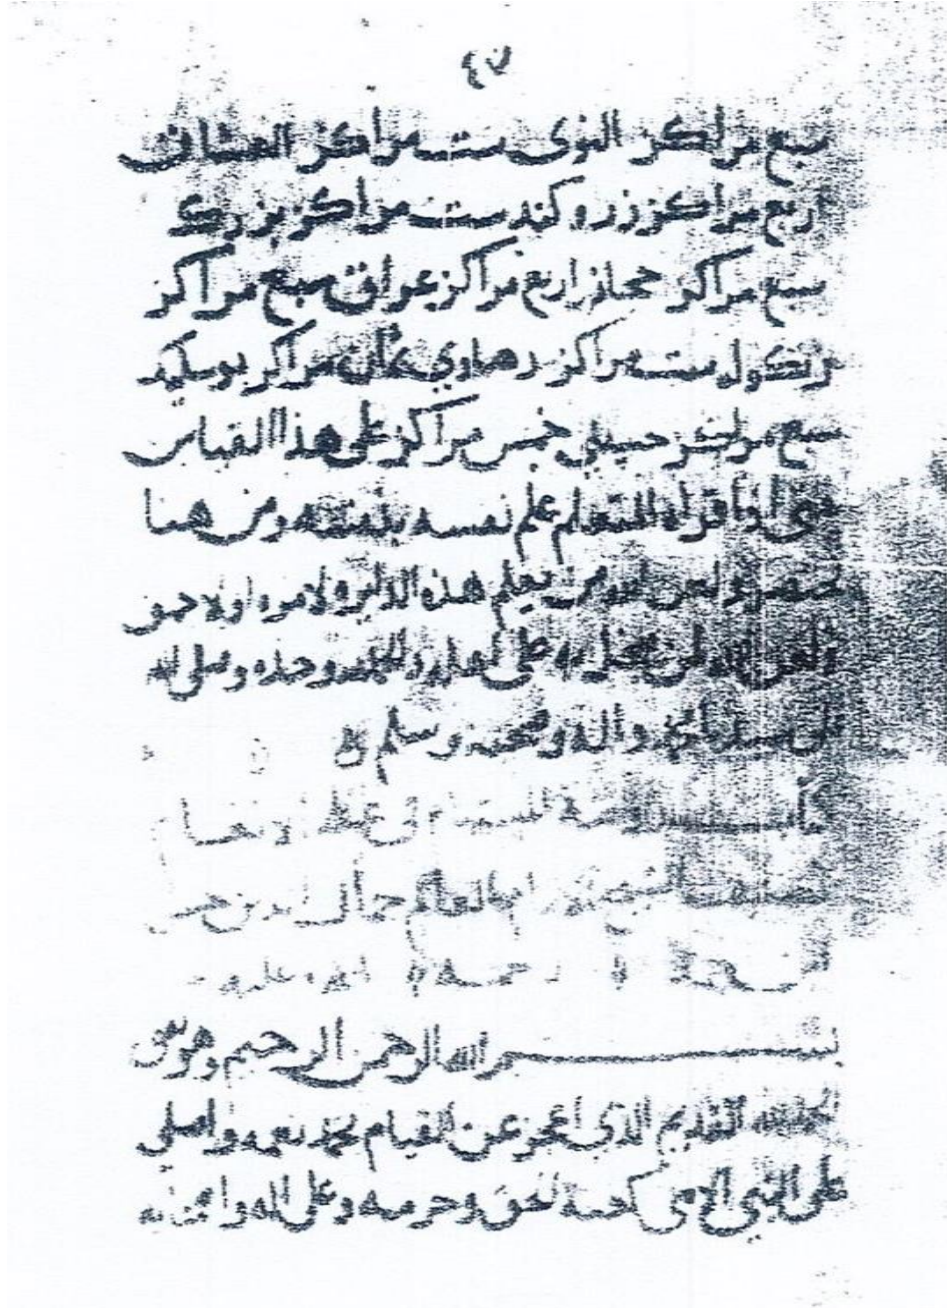 ٤٧
سبع مراكز النوى ست مراكز العشاق
اربع مراكز زروكند ست مراكز بزرك
سبع مراكز حجاز اربع مراكز عراق سبع مراكز
زنكوله ست مراكز رهاوي ثمان مراكز بوسليك
سبع مراكز حسيني خمس مراكز على هذا القياس
اذا قراه المتعلم علم نفسه بنفسه ومن هنا
ولعن الله من يعلم هذه الداير ولامره اولاحمق
ولعن الله من بخل به على اهله والحمد لله وحده وصلى الله
على سيدنا محمد واله وصحبه وسلم
كتاب روضة المستهام في علم الانغام
الشيخ العالم جمال الدين حسن
بن احمد رحمة الله عليه
بسم الله الرحمن الرحيم وهو
الحمد لله القديم الذي اعجز عن القيام بحمد نعمه واصلي
على النبي الامي كعبة الحق وحرمه وعلى اله واصحابه